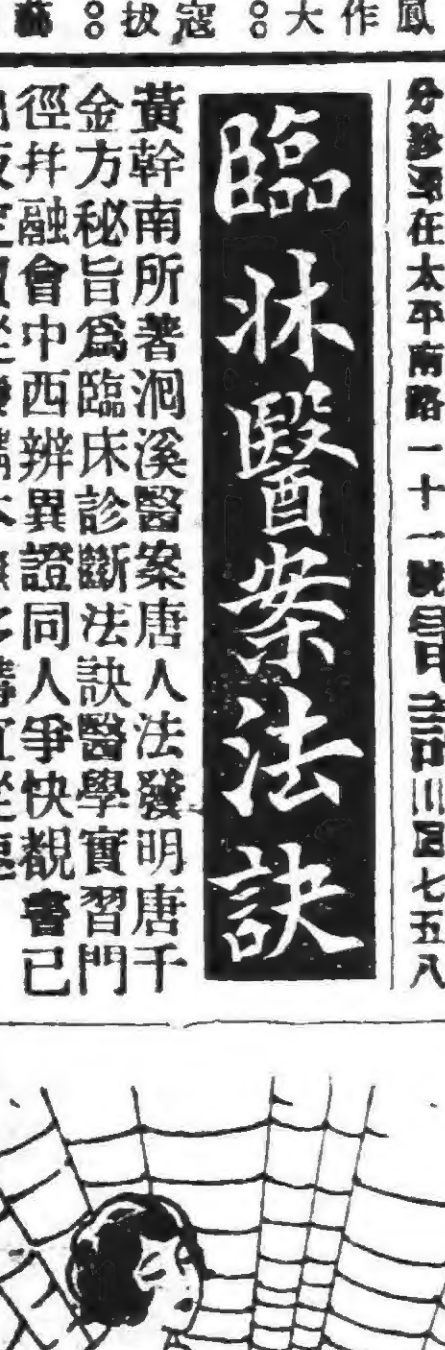 鳳作大⦂寇拔
在太平南路一十一號
七五八
臨牀醫案法訣
黃幹南所著洄溪醫案唐人法發明唐千
金方秘旨爲臨床診斷法訣醫學實習門
徑幷融會中西辨異證同人爭快覩書已